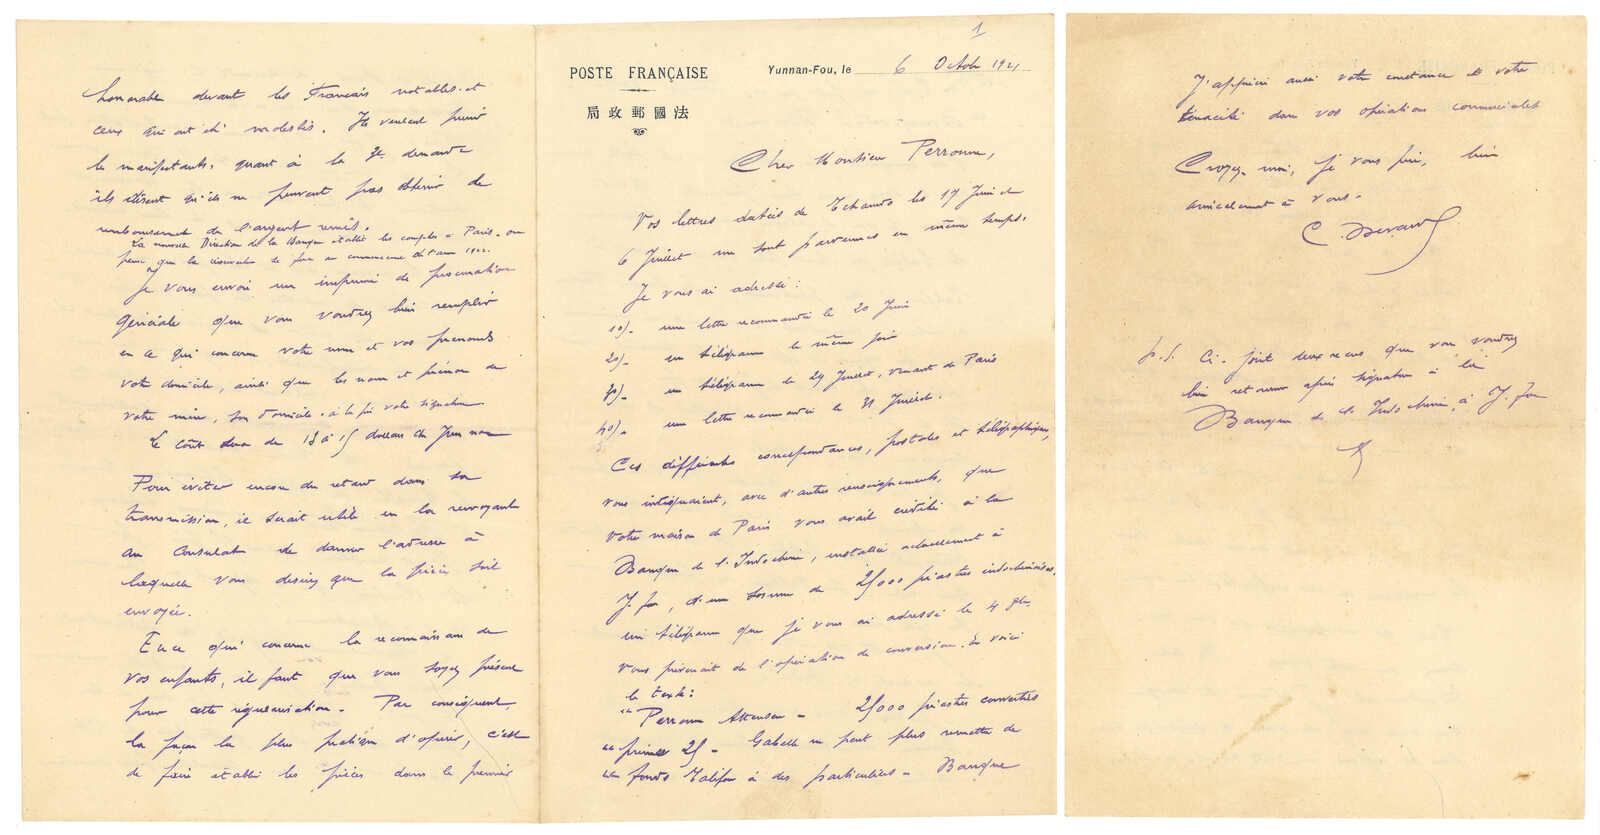 1
POSTE FRANÇAISE
局政郵國法
Yunnan-Fou, le 6 Octobre 1921
Cher Monsieur Perronne,
Vos lettres datées de Tchamdo les 17 Juin et
6 Juillet me sont parvenues en même temps.
Je vous ai adressé :
1o)- une lettre recommandée le 20 Juin
2o)- un télégramme le même jour
3o)- un télégramme le 29 Juillet, venant de Paris
4o)- une lettre recommandée le 31 Juillet.
Ces différentes correspondances, postales et télégraphiques,
vous indiquaient, avec d'autres renseignements, que
votre maison de Paris vous avait crédité à la
Banque de l'Indochine, installée actuellement à
Y. fou, d'une somme de 25000 piastres indochinoises.
un télégramme que je vous ai adressé le 4 7bre
vous prévenait de l'opération de conversion. En voici
le texte :
" Perronne Attensen - 25000 piastres converties
" prime 25 - Gabelle ne peut plus remettre de
" fonds Talifou à des particuliers - Banque
honorable devant les Français notables et
ceux qui ont été molestés. Ils veulent punir
les manifestants, quant à la 3e demande
ils disent qu'ils ne peuvent pas obtenir de
remboursement de l'argent remis.
La nouvelle Direction de la Banque établit les comptes à Paris. on
pense que la se fera au commencement d'année 1922.
Je vous envoie un imprimé de procuration
Générale que vous voudrez bien remplir
en ce qui concerne votre nom et vos prénoms
votre domicile, ainsi que les nom et prénom de
votre mère, son domicile. à la fin votre signature.
Le coût sera de 13 à 15 dollars du Yunnan
Pour éviter encore du retard dans sa
transmission, il serait utile en la renvoyant
au Consulat de donner l'adresse à
laquelle vous désirez que la pièce soit
envoyée.
En ce qui concerne la reconnaissance de
vos enfants, il faut que vous soyez présent
pour cette régularisation. Par conséquent,
la façon la plus pratique d'opérer, c'est
de faire établir les pièces dans le premier
J'apprécie aussi votre constance et votre
ténacité dans vos opérations commerciales
Croyez-moi, je vous prie, bien
amicalement à vous.
p.s. Ci-joint deux reçus que vous voudrez
bien retourner après signature à la
Banque de l'Indochine, à Y. fou